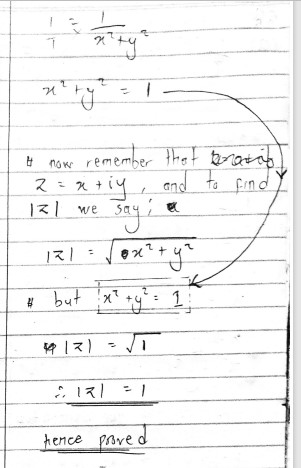 1/1 = 1/x²+y²
x² + y² = 1
# now remember that
z = x + iy, and to find
|z| we say;
|z| = √x² + y²
# but x² + y² = 1
|z| = √1
∴ |z| = 1
hence proved